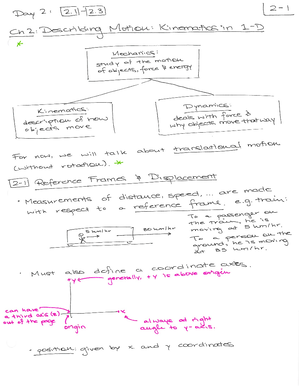 Day 2: 2.1-2.3
2-1
Ch 2: Describing Motion: Kinematics in 1-D
*
Mechanics:
study of the motion
of objects, force & energy
Kinematics:
description of how
objects move
Dynamics
deals with force &
why objects move that way
For now, we will talk about translational motion
(without rotation). *
2-1 Reference Frames & Displacement
• Measurements of distance, speed, ... are made
with respect to a reference frame. e.g. train:
5 km/hr
80 km/hr
To a passenger on
the train, he is
moving at 5 km/hr.
To a person on the
ground, he is moving
at 85 km/hr.
• Must also define a coordinate axes.
+y
generally, +y is above origin
can have
a third axis (z)
out of the page
+x
origin
always at right
angle to y-axis.
• position given by x and y coordinates